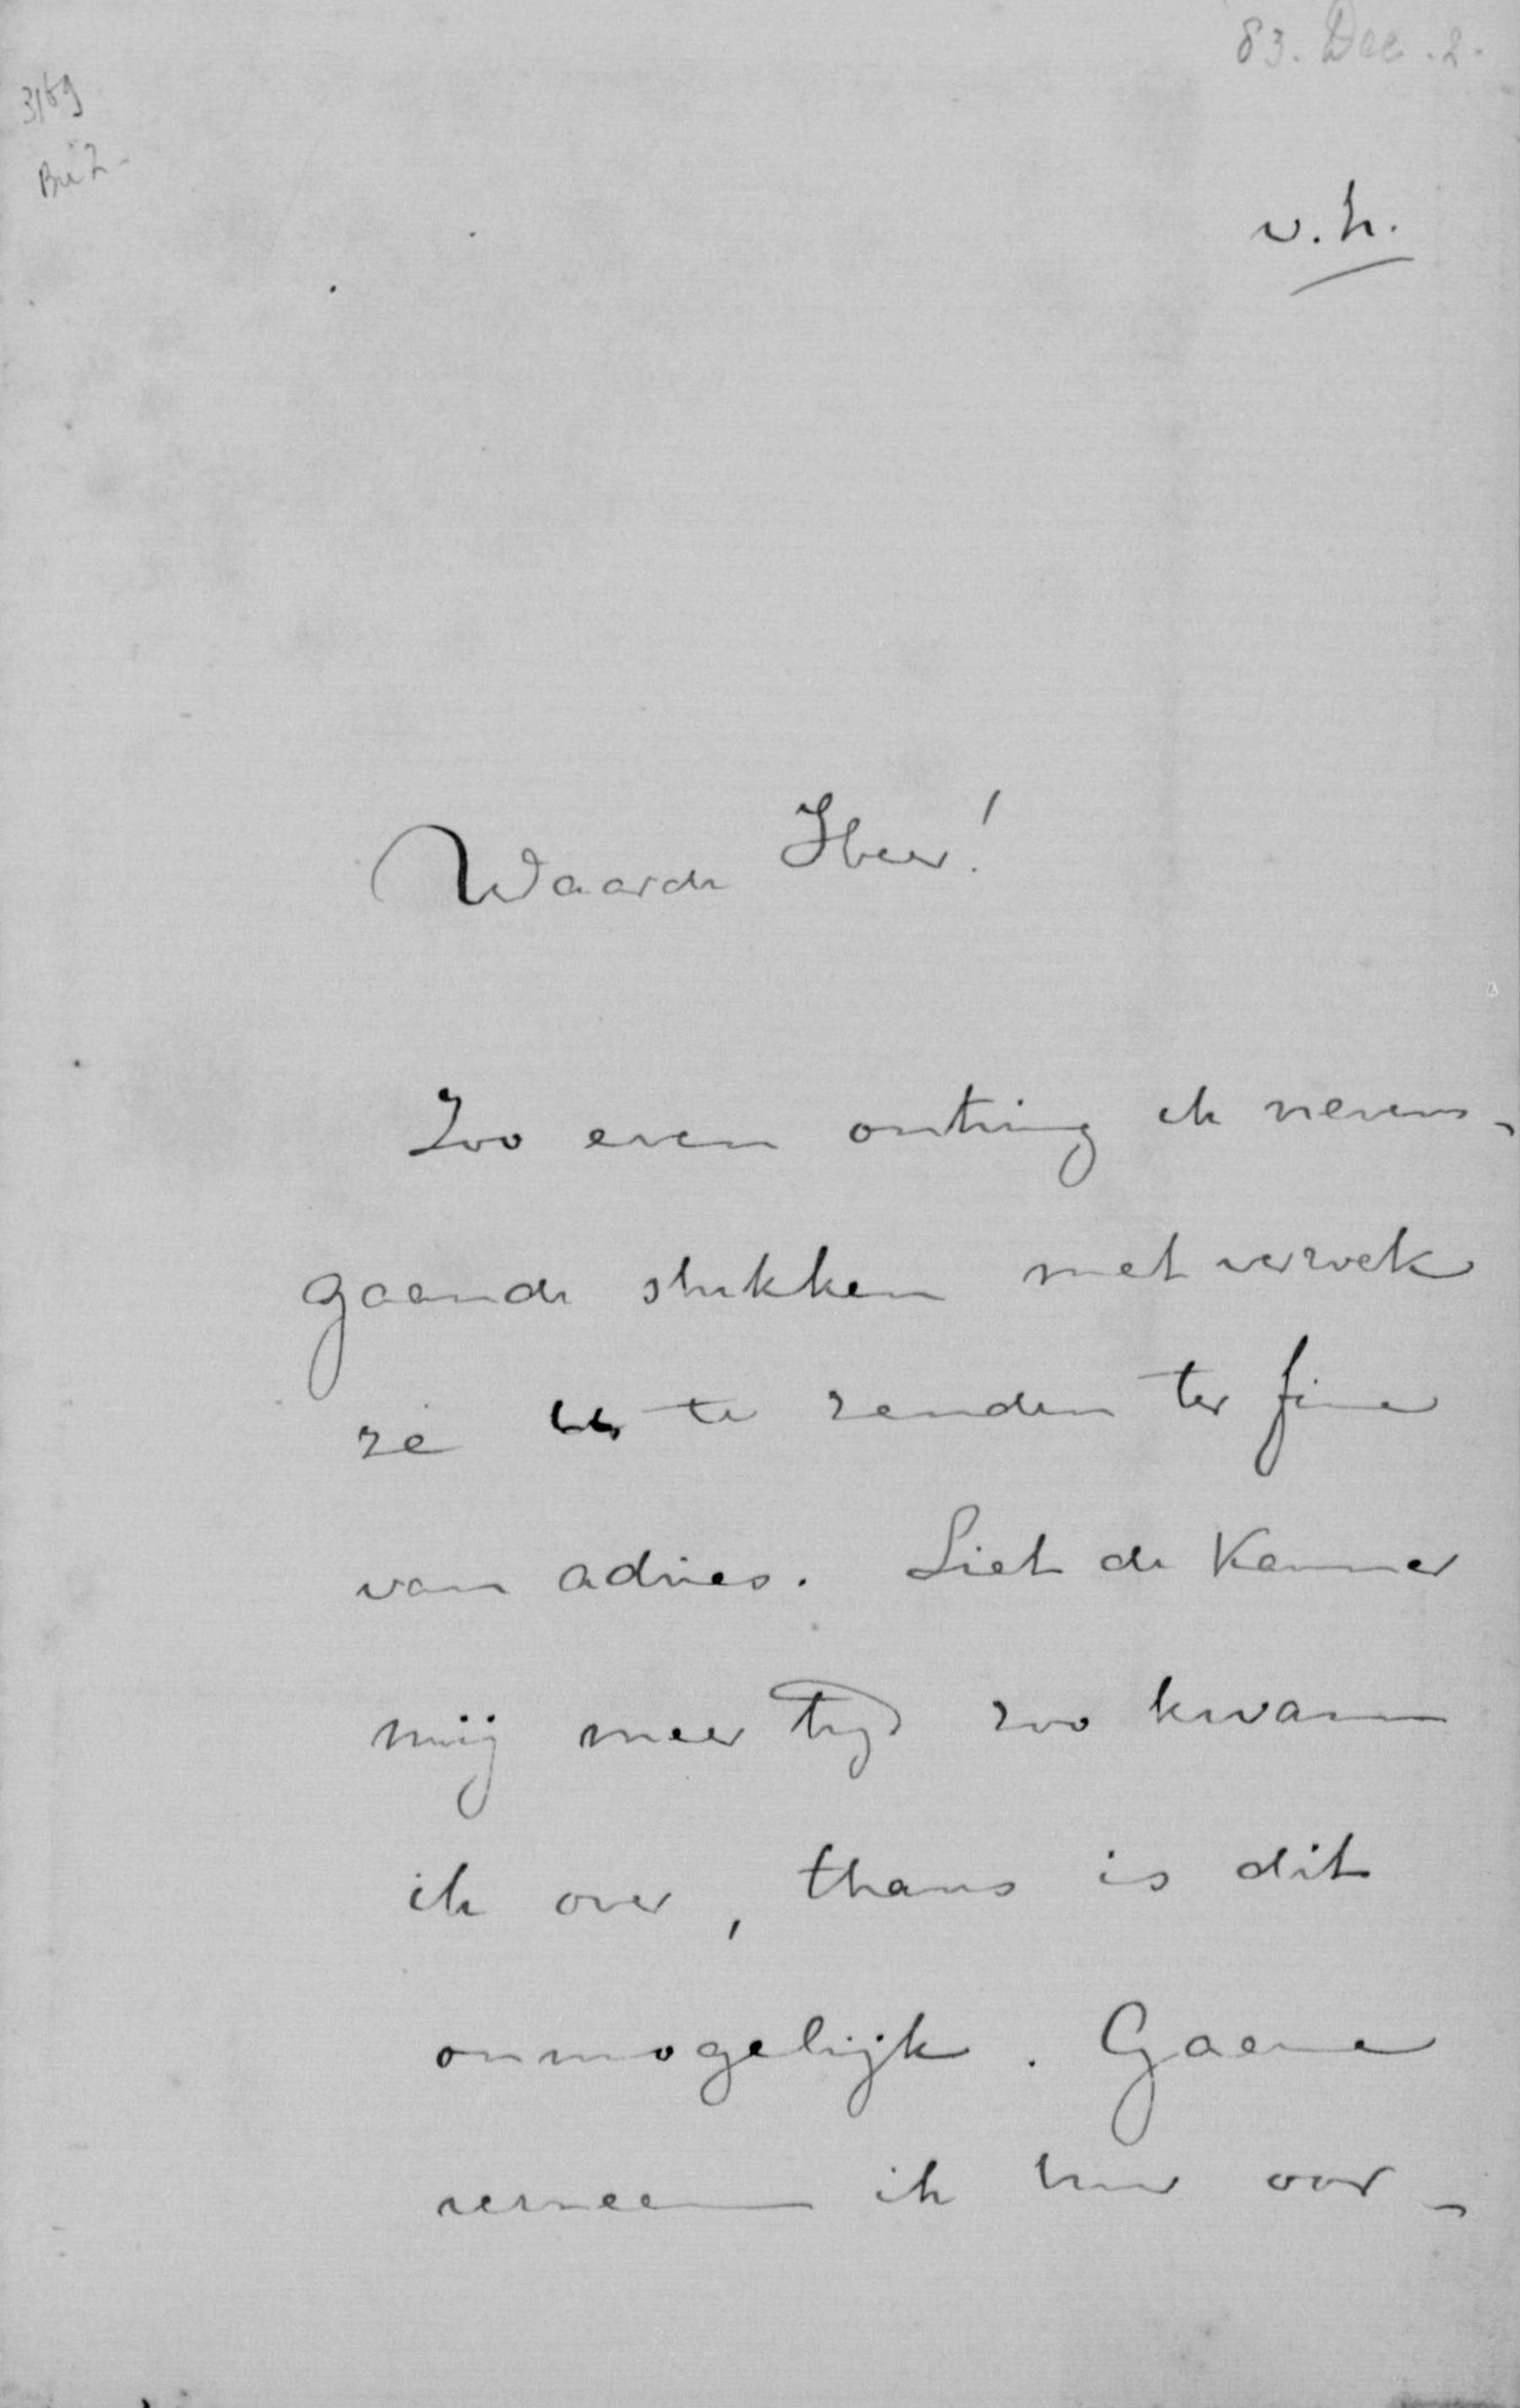 83. Dec. 2.
3169
v.h.
Waarde Heer!
Zoo even ontving ik nevens-
gaande stukken met verzoek
ze U te zenden ter fine
van advies. Liet de Kamer
mij meer tijd zoo kwam
ik over, thans is dit
onmogelijk. Gaarne
verneem ik Uw oor-